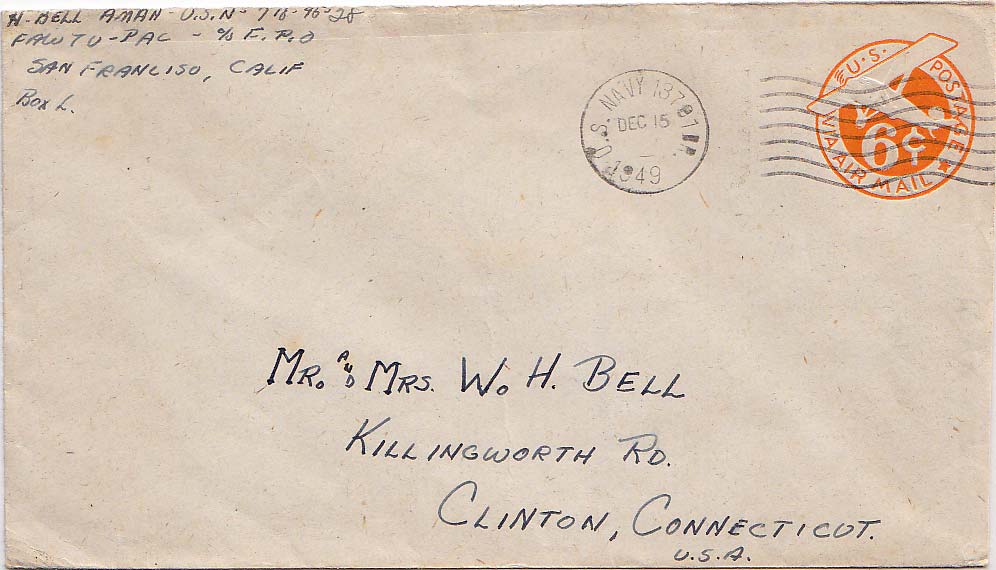 H. BELL AMAN - U.S.N - 718-96-28
FAWTU-PAC - % F.P.O
SAN FRANCISO, CALIF
Box L.
U.S. NAVY 13787 BR.
DEC 15
1949
U.S. POSTAGE
6¢
VIA AIR MAIL
MR. AND MRS. W. H. BELL
KILLINGWORTH RD.
CLINTON, CONNECTICUT.
U.S.A.